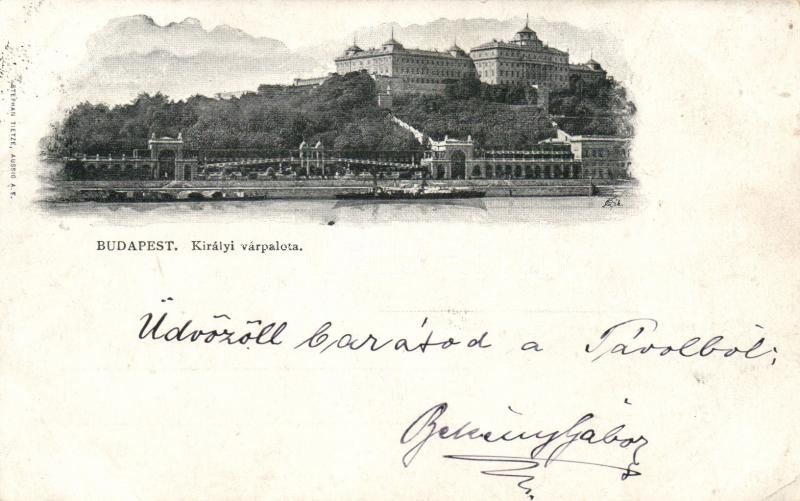 STEPHAN TIETZE, AUSSIG A. E.
BUDAPEST. Királyi várpalota.
Üdvözöll barátod a Távolból;
Bekény Gábor